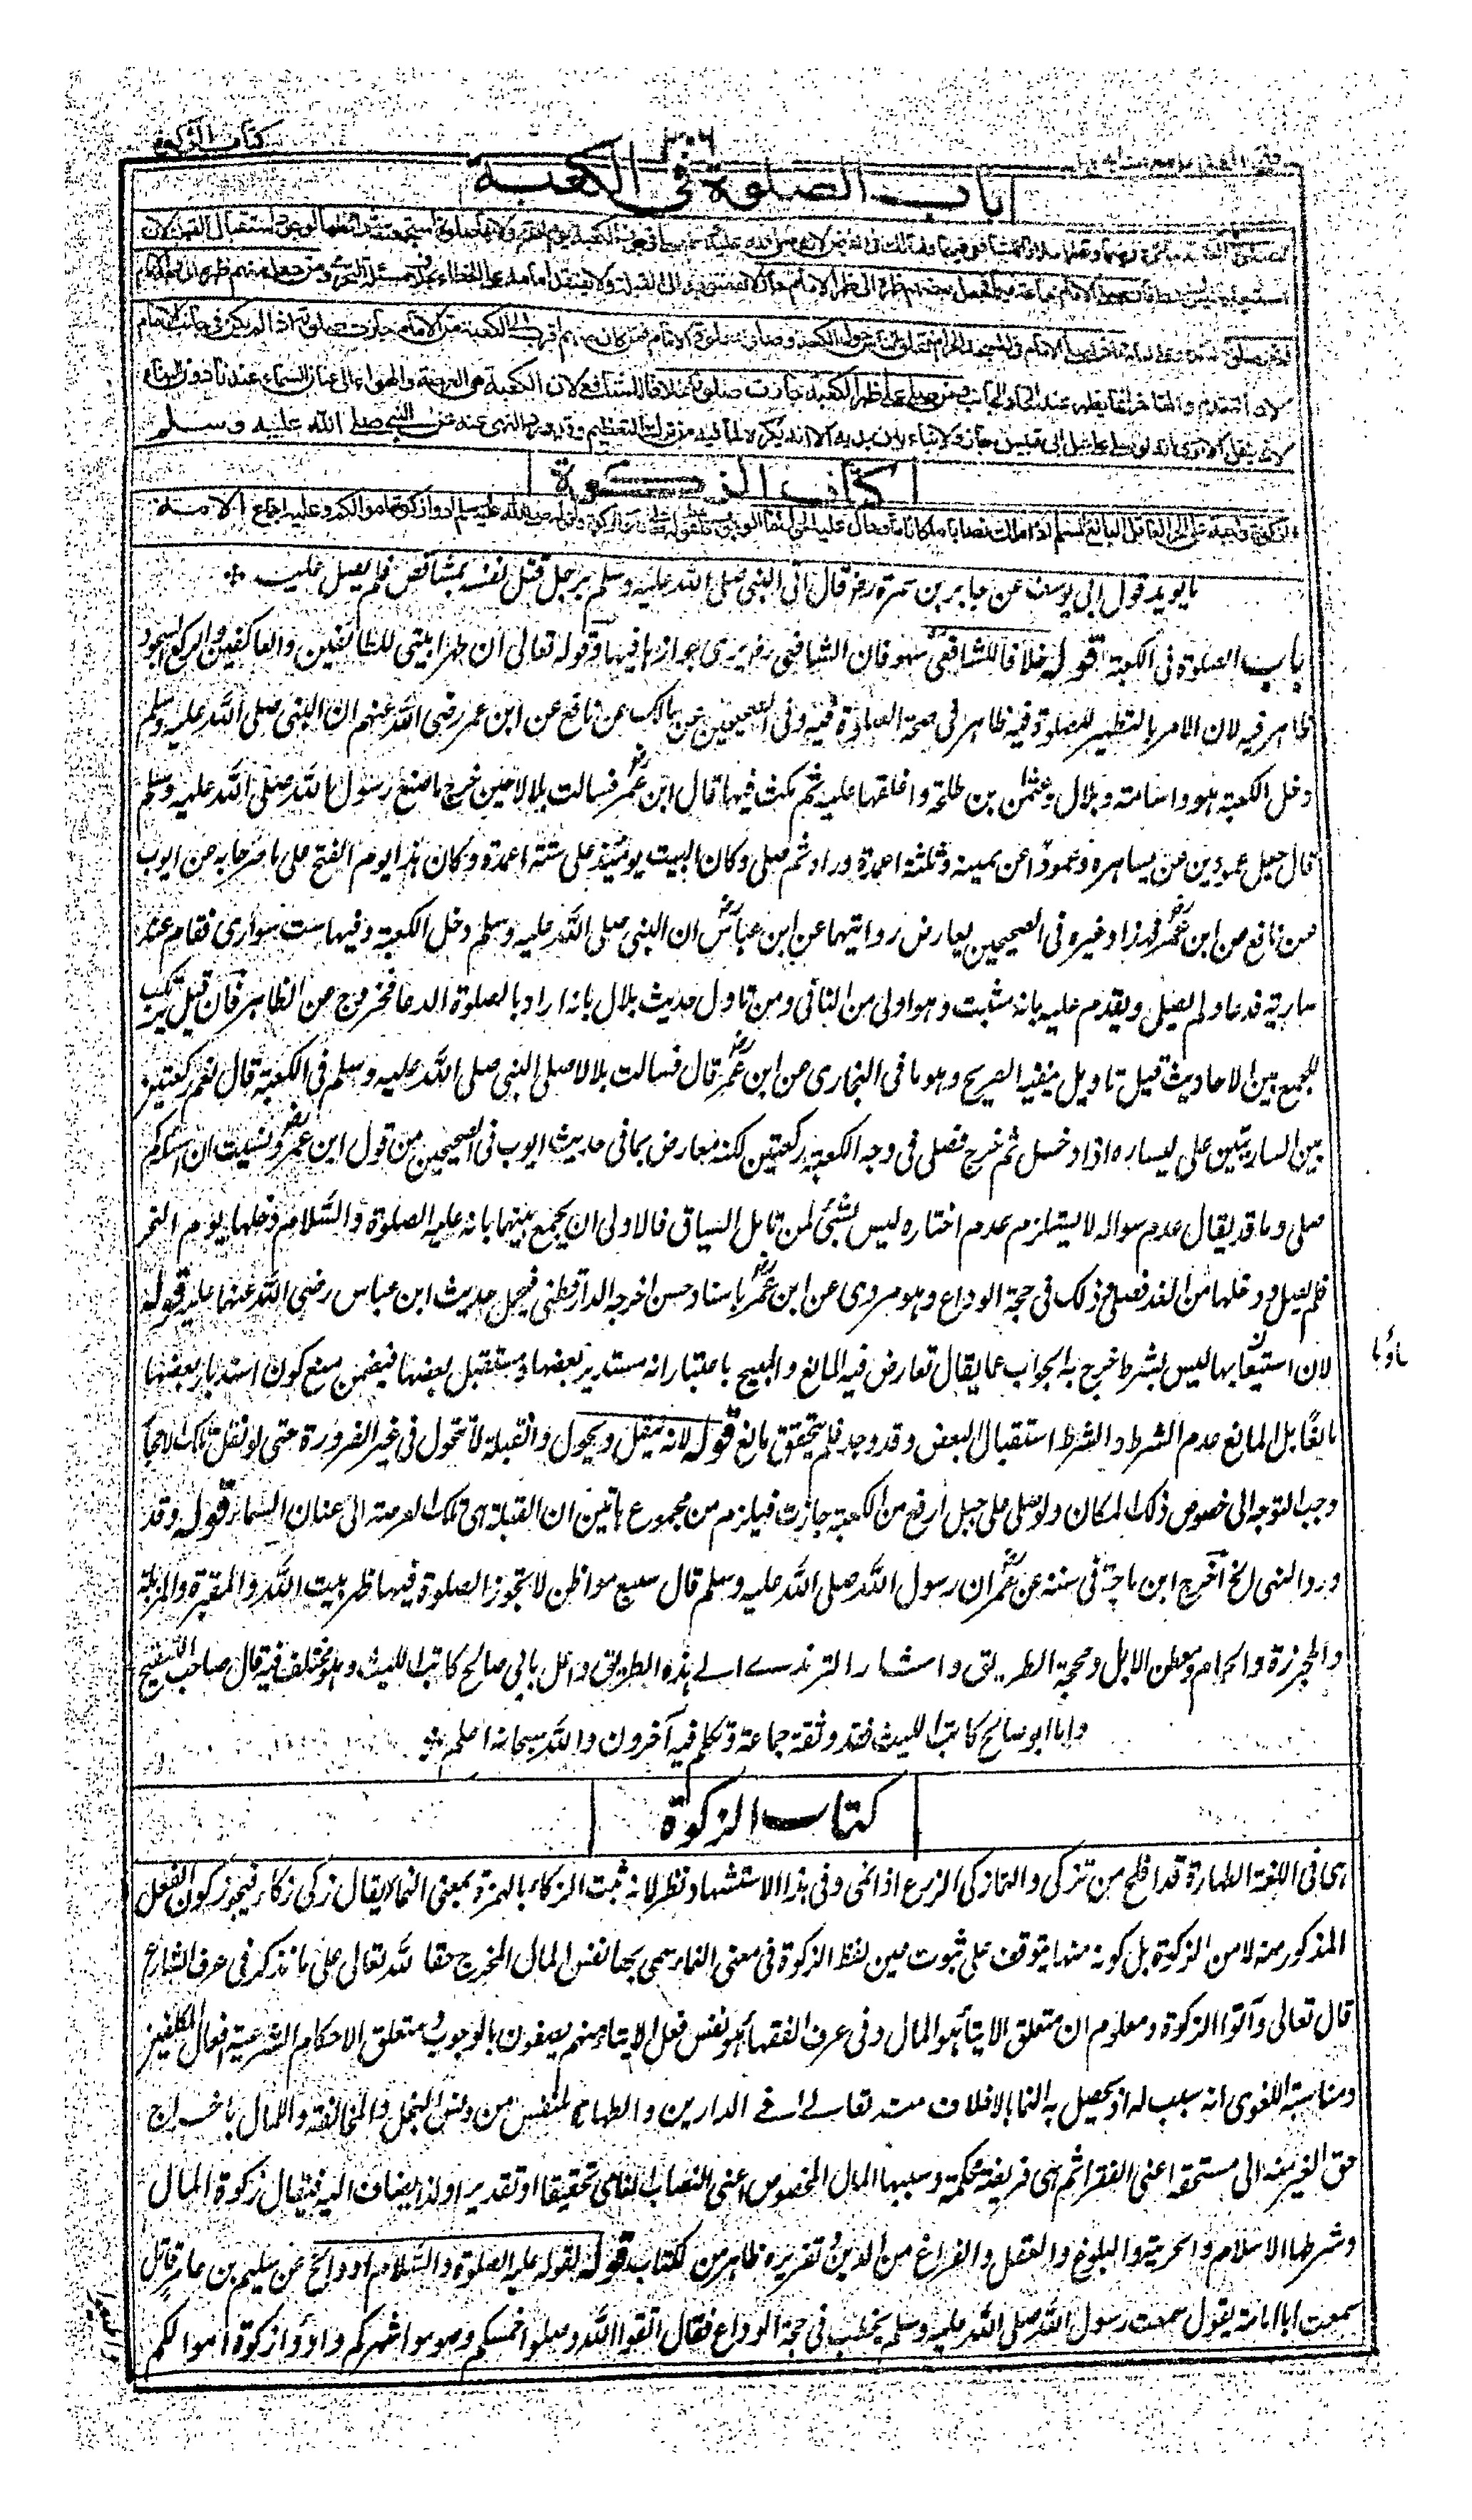 كتاب الزكوة
٣٠٦
باب الصلوة في الكعبة
الصلوة في الكعبة جائزة فرضها ونفلها خلافا للشافعي فيهما ولمالك في الفرض لانه صلى الله عليه وسلم صلى في جوف الكعبة يوم الفتح ولانها صلوة استجمعت شرائطها لوجود استقبال القبلة لان
استيعابها ليس بشرط فان صلى الامام بجماعة فيها فجعل بعضهم ظهره الى ظهر الامام جاز لانه متوجه الى القبلة ولا يعتقد امامه على الخطاء بخلاف مسئلة التحري ومن جعل منهم ظهره الى وجه الامام
لم تجز صلوته لتقدمه على امامه واذا صلى الامام في المسجد الحرام فتحلق الناس حول الكعبة وصلوا بصلوة الامام فمن كان منهم اقرب الى الكعبة من الامام جازت صلوته اذا لم يكن في جانب الامام
لان التقدم والتاخر انما يظهر عند اتحاد الجانب ومن صلى على ظهر الكعبة جازت صلوته خلافا للشافعي لان الكعبة هي العرصة والهواء الى عنان السماء عندنا دون البناء
لانه ينقل الا ترى انه لو صلى على جبل ابي قبيس جاز ولا بناء بين يديه الا انه يكره لما فيه من ترك التعظيم وقد ورد النهي عنه عن النبي صلى الله عليه وسلم
كتاب الزكوة
الزكوة واجبة على الحر العاقل البالغ المسلم اذا ملك نصابا ملكا تاما وحال عليه الحول اما الوجوب فلقوله تعالى وآتوا الزكوة ولقوله صلى الله عليه وسلم ادوا زكوة اموالكم وعليه اجماع الامة
ما يويد قول ابي يوسف عن جابر بن سمرة رض قال اتى النبي صلى الله عليه وسلم برجل قتل نفسه بمشاقص فلم يصل عليه
باب الصلوة في الكعبة قوله خلافا للشافعي سهو فان الشافعي رض يرى جوازها فيها وقوله تعالى ان طهرا بيتي للطائفين والعاكفين والركع السجود
ظاهر فيه لان الامر بالتطهير للصلوة فيه ظاهر في صحة الصلوة فيه وفي الصحيحين عن مالك عن نافع عن ابن عمر رضي الله عنهم ان النبي صلى الله عليه وسلم
دخل الكعبة هو واسامة وبلال وعثمن بن طلحة واغلقها عليه ثم مكث فيها قال ابن عمر رض فسالت بلالا حين خرج ما صنع رسول الله صلى الله عليه وسلم
قال جعل عمودين عن يساره وعمودا عن يمينه وثلثة اعمدة وراءه ثم صلى وكان البيت يومئذ على ستة اعمدة وكان هذا يوم الفتح على ما صرحا به عن ايوب
عن نافع عن ابن عمر رض فهذا وغيره في الصحيحين يعارض روايتهما عن ابن عباس رض ان النبي صلى الله عليه وسلم دخل الكعبة وفيها ست سواري فقام عند
سارية فدعا ولم يصل ويقدم عليه بانه مثبت وهو اولى من النافي ومن تاول حديث بلال بانه اراد بالصلوة الدعا فخروج عن الظاهر فان قيل يرتكب
للجمع بين الاحاديث قيل تاويل ينفيه الصريح وهو ما في البخاري عن ابن عمر رض قال فسالت بلالا صلى النبي صلى الله عليه وسلم في الكعبة قال نعم ركعتين
بين الساريتين على يساره اذا دخل ثم خرج فصلى في وجه الكعبة ركعتين لكنه معارض بما في حديث ايوب في الصحيحين من قول ابن عمر رض ونسيت ان اسئله كم
صلى وما قد يقال عدم سواله لا يستلزم عدم اخباره ليس بشئ لمن تامل السياق فالاولى ان يجمع بينهما بانه عليه الصلوة والسلام دخلها يوم النحر
فلم يصل ودخلها من الغد فصلى وذلك في حجة الوداع وهو مروي عن ابن عمر رض باسناد حسن اخرجه الدارقطني فيحمل حديث ابن عباس رضي الله عنهما عليه قوله
لان استيعابها ليس بشرط خرج به الجواب عما يقال تعارض فيه المانع والمبيح باعتبار انه مستدبر بعضها ومستقبل بعضها فيضمن منع كون استدبار بعضها
مانعا بل المانع عدم الشرط والشرط استقبال البعض وقد وجد فلم يتحقق مانع قوله لانه ينقل ويحول والقبلة لا تتحول في غير الضرورة حتى لو نقل تلك الاحجار
وجب التوجه الى خصوص ذلك المكان ولو صلى على جبل ارفع من الكعبة جازت فيلزم من مجموع هاتين ان القبلة هي تلك العرصة الى عنان السماء قوله وقد
ورد النهي الخ اخرج ابن ماجة في سننه عن عمر رض ان رسول الله صلى الله عليه وسلم قال سبع مواطن لا تجوز الصلوة فيها ظهر بيت الله والمقبرة والمزبلة
والمجزرة والحمام وعطن الابل ومحجة الطريق واشار الترمذي الى هذه الطريق واعل بابي صالح كاتب الليث وهو مختلف فيه قال صاحب التنقيح
واما ابو صالح كاتب الليث فقد وثقه جماعة وتكلم فيه آخرون والله سبحانه اعلم
كتاب الزكوة
هي في اللغة الطهارة قد افلح من تزكى والنماء زكى الزرع اذا نمى وفي هذا الاستشهاد نظر لانه ثبت الزكاء بالهمزة بمعنى النماء يقال زكى زكاء فيجوز كون الفعل
المذكور منه لا من الزكوة بل كونه منها يتوقف على ثبوت عين لفظ الزكوة في معنى النماء سمي بها نفس المال المخرج حقا لله تعالى على ما نذكر في عرف الشارع
قال تعالى وآتوا الزكوة ومعلوم ان متعلق الايتاء هو المال وفي عرف الفقهاء هو نفس فعل الايتاء لانهم يصفون بالوجوب ومتعلق الاحكام الشرعية افعال المكلفين
ومناسبة اللغوي انه سبب له اذ يحصل به النماء بالاخلاف منه تعالى في الدارين والطهارة للنفس من دنس البخل والمخالفة وللمال باخراج
حق الغير منه الى مستحقه اعني الفقراء ثم هي فريضة محكمة وسببها المال المخصوص اعني النصاب النامي تحقيقا او تقديرا ولذا يضاف اليه فيقال زكوة المال
وشرطها الاسلام والحرية والبلوغ والعقل والفراغ من الدين تقريره ظاهر من الكتاب قوله لقوله عليه الصلوة والسلام ادوا الخ عن سليم بن عامر قال
سمعت ابا امامة يقول سمعت رسول الله صلى الله عليه وسلم يخطب في حجة الوداع فقال اتقوا الله وصلوا خمسكم وصوموا شهركم وادوا زكوة اموالكم